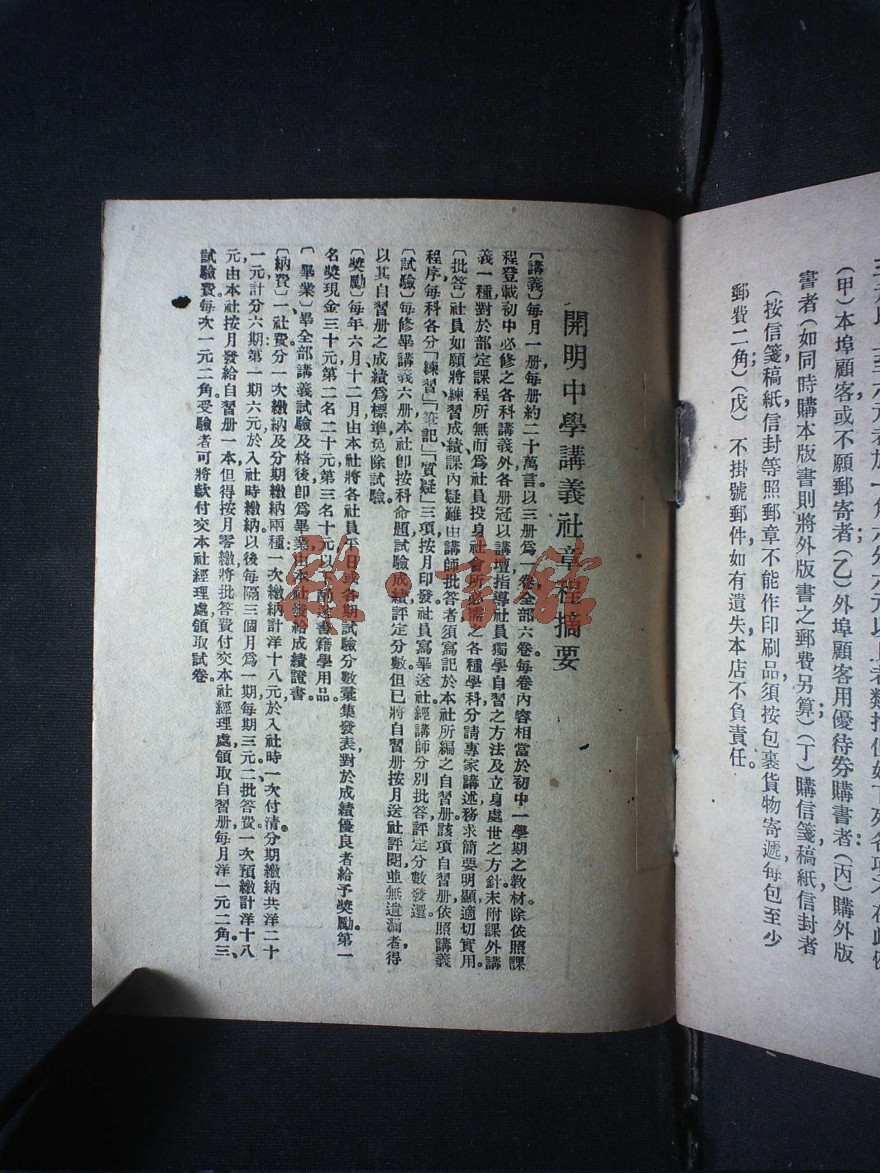 (甲)本埠顧客或不願郵寄者;(乙)外埠顧客用優待劵購書者;(丙)購外版
書者,(如同時購本版書,則將外版書之郵費另算);(丁)購信箋稿紙信封者
(按信箋稿紙信封等,照郵章不能作印刷品,須按包裹貨物寄遞,每包至少
郵費二角);(戊)不掛號郵件,如有遺失,本店不負責任。
開明中學講義社章程摘要
〔講義〕每月一册,每册約二十萬言,以三册爲一卷,全部六卷,每卷內容相當於初中一學期之教材。除依照課
程登載初中必修之各科講義外,各册冠以講壇,指導社員獨學自習之方法及立身處世之方針,末附課外講
義一種,對於部定課程所無而爲社員投身社會所必需之各種學科,分請專家講述,務求簡要明顯,適切實用。
〔批答〕社員如願將練習成績、課內疑難由講師批答者,須寫記於本社所編之自習册,該項自習册依照講義
程序,每科各分「練習」「筆記」「質疑」三項,按月印發,社員寫畢送社,經講師分別批答,評定分數發還。
〔試驗〕每修畢講義六册,本社卽按科命題試驗成績,評定分數。但已將自習册按月送社評閱並無遺漏者,得
以其自習册之成績爲標準,免除試驗。
〔獎勵〕每年六月、十二月由本社將各社員平日或各期試驗分數彙集發表,對於成績優良者給予獎勵:第一
名獎現金三十元,第二名二十元,第三名十元,以下酌送書籍學用品。
〔畢業〕畢全部講義,試驗及格後,卽爲畢業,由本社發給成績證書。
〔納費〕一、社費分一次繳納及分期繳納兩種:一次繳納計洋十八元,於入社時一次付清。分期繳納共洋二十
一元,計分六期,第一期六元,於入社時繳納。以後每隔三個月爲一期,每期三元。二、批答費一次預繳計洋十八
元,由本社按月發給自習册一本,但得按月零繳,將批答費付交本社經理處,領取自習册,每月洋一元二角。三、
試驗費每次一元二角,受驗者可將欵付交本社經理處,領取試卷。